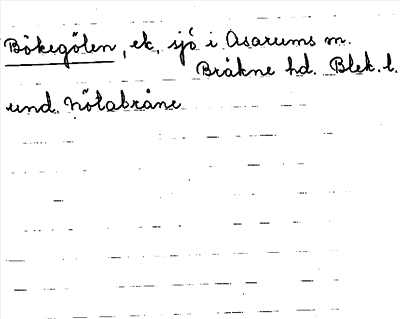 Bökegölen, ek. sjö i Asarums sn.
Bräkne hd. Blek. l.
und. Nötabråne